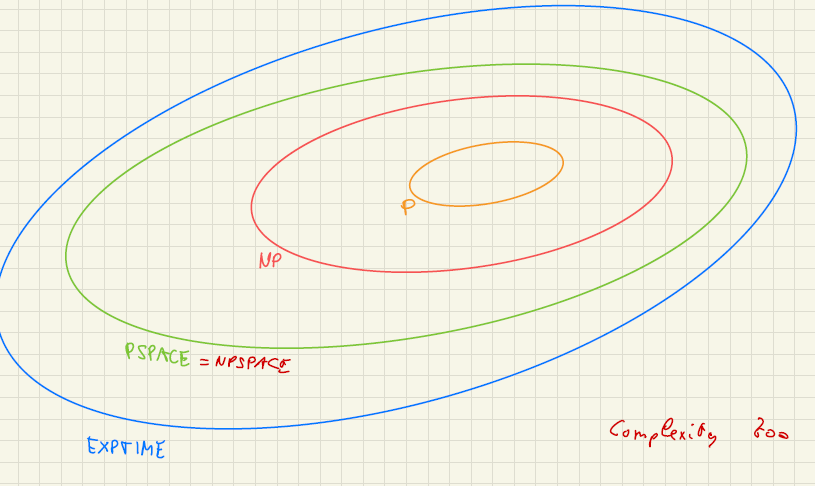 P
NP
PSPACE = NPSPACE
EXPTIME
Complexity Zoo